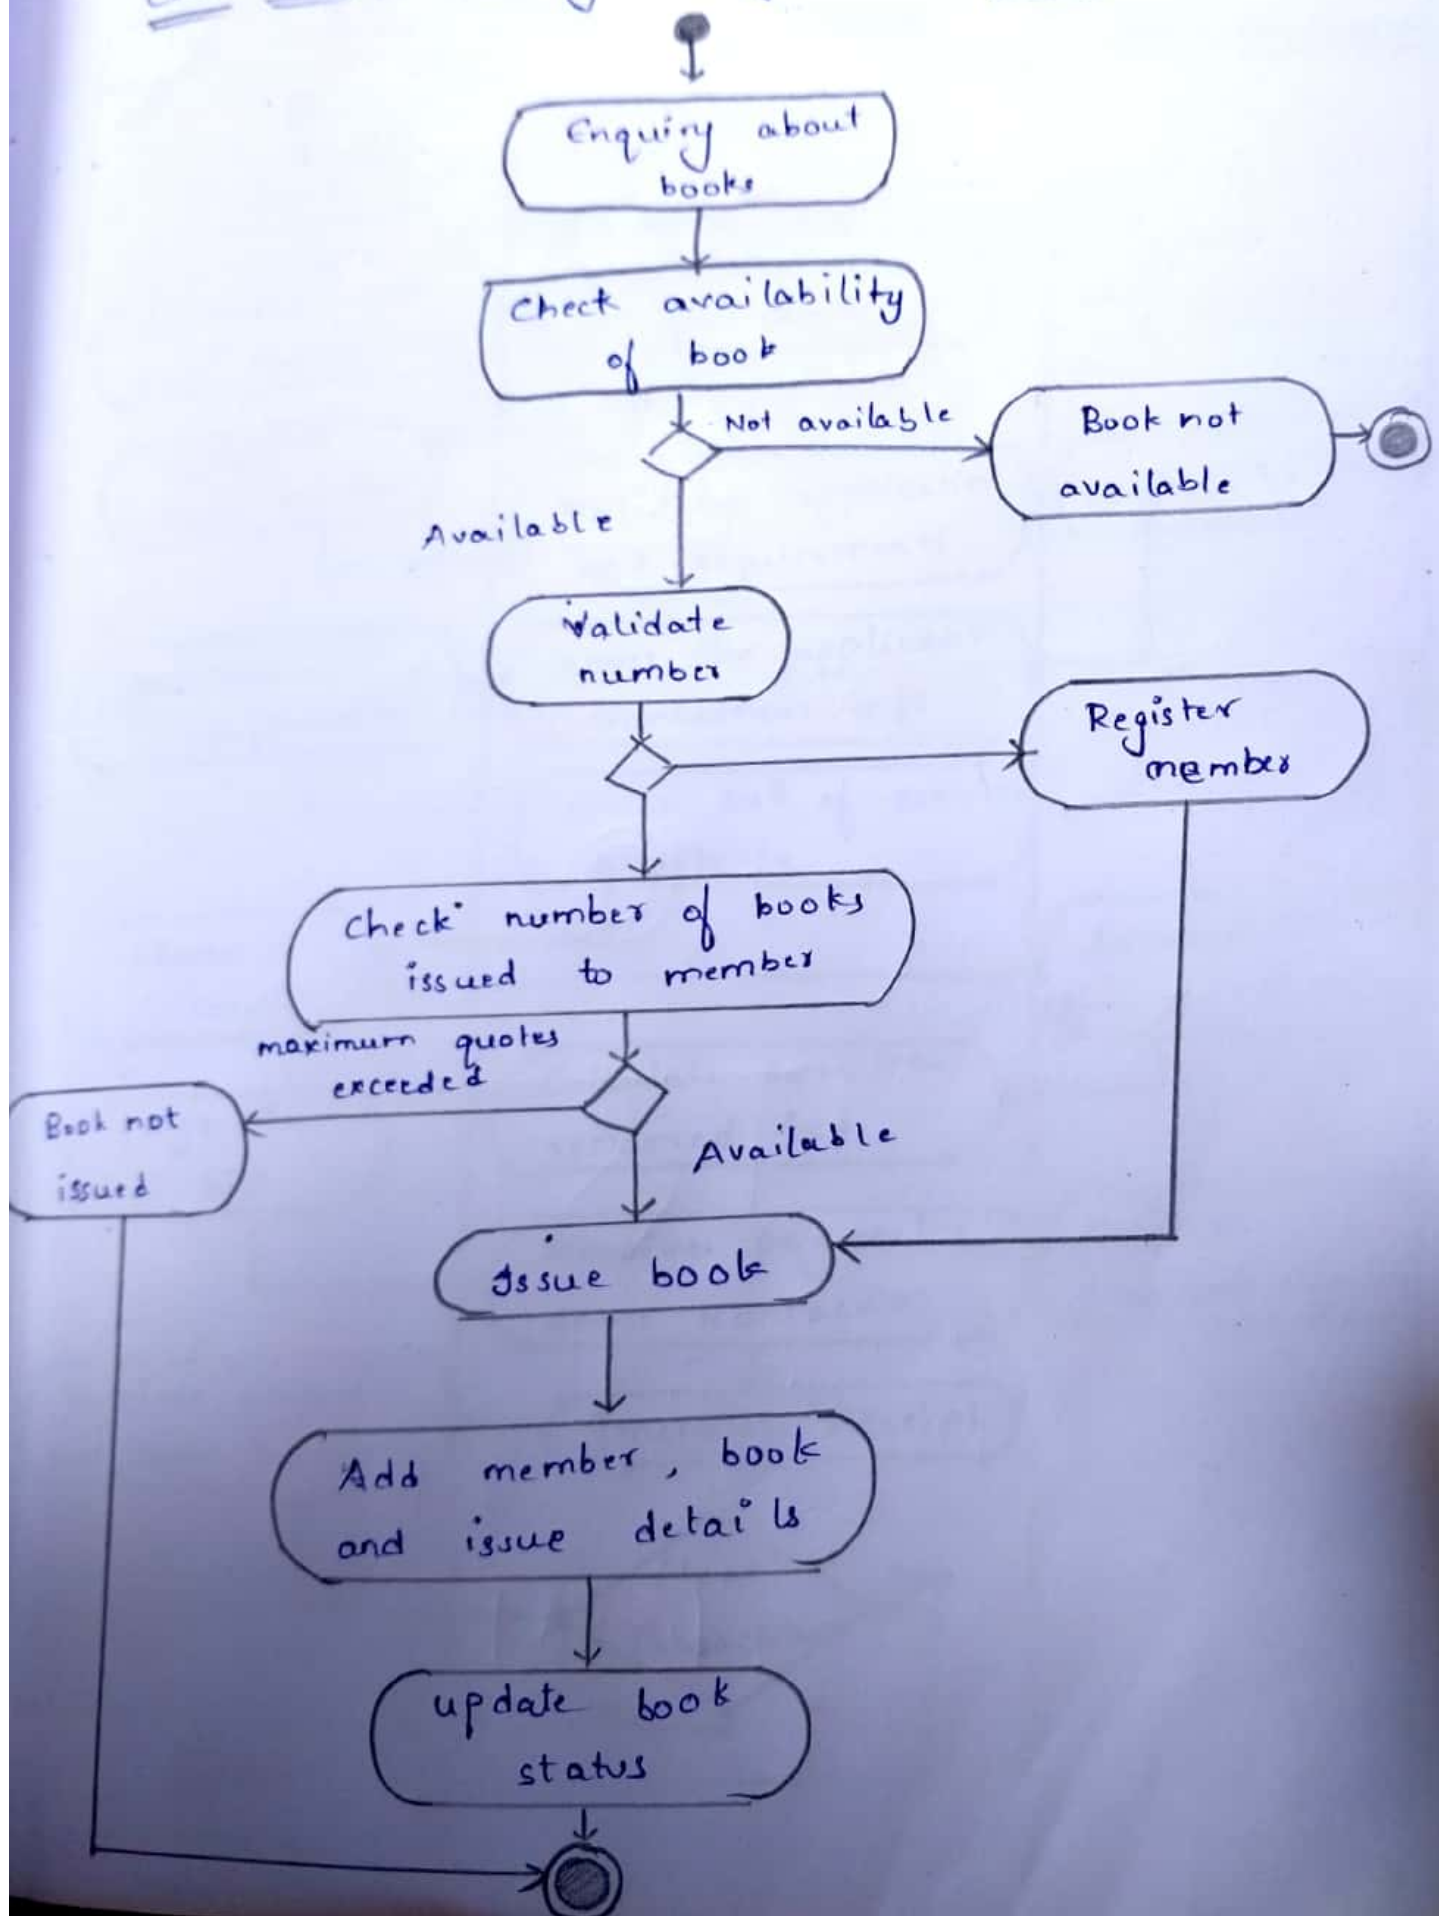 Enquiry about
books
Check availability
of book
Not available
Book not
available
Available
Validate
number
Register
member
Check number of books
issued to member
maximum quotes
exceeded
Book not
issued
Available
Issue book
Add member, book
and issue details
update book
status